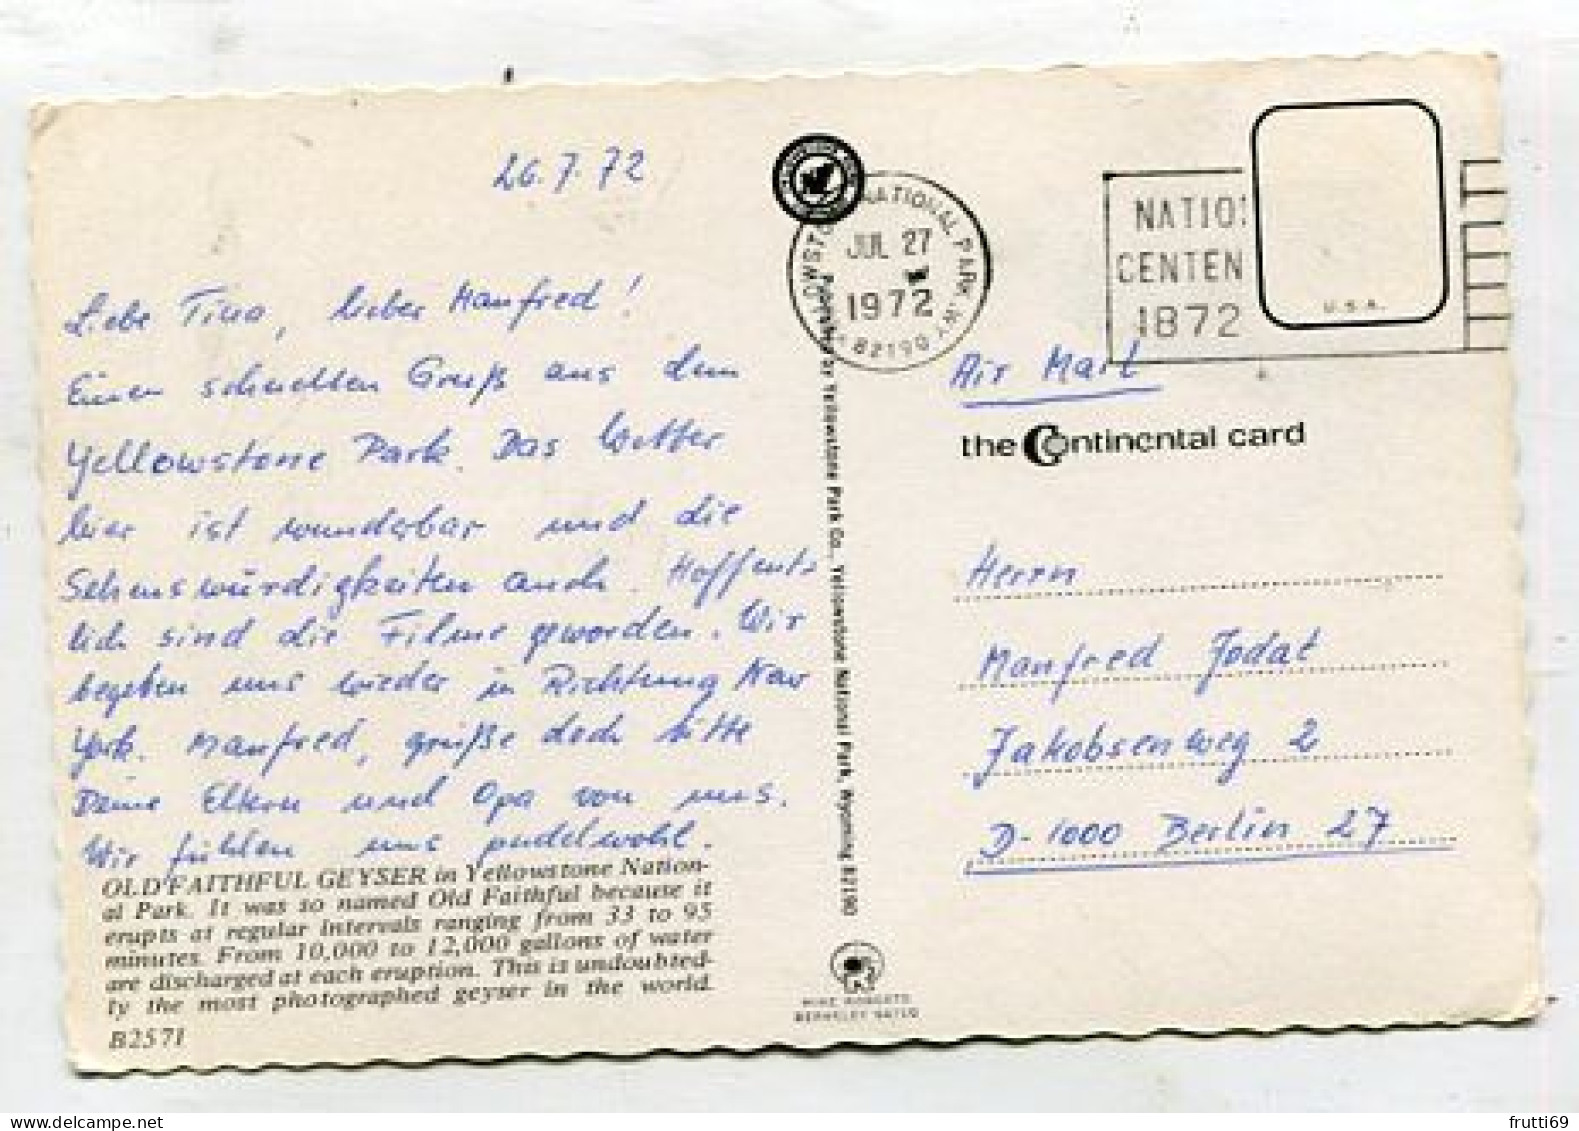 26.7.72
Liebe Tina, lieber Manfred!
Einen schnellen Gruß aus dem
Yellowstone Park. Das Wetter
hier ist wunderbar und die
Sehenswürdigkeiten auch. Hoffent-
lich sind die Filme geworden. Wir
begeben uns wieder in Richtung New
York. Manfred, grüße doch bitte
Deine Eltern und Opa von uns.
Wir fühlen uns pudelwohl.
OLD FAITHFUL GEYSER in Yellowstone Nation-
al Park. It was so named Old Faithful because it
erupts at regular intervals ranging from 33 to 95
minutes. From 10,000 to 12,000 gallons of water
are discharged at each eruption. This is undoubted-
ly the most photographed geyser in the world.
B2571
Published by Yellowstone Park Co., Yellowstone National Park, Wyoming 82190
MIKE ROBERTS
BERKELEY 94710
NATIONAL PARK, WY
JUL 27
1972
82190
NATIO
CENTEN
1872
U.S.A.
Air Mail
the Continental card
Herrn
Manfred Jodat
Jakobsenweg 2
D-1000 Berlin 27
frutti69